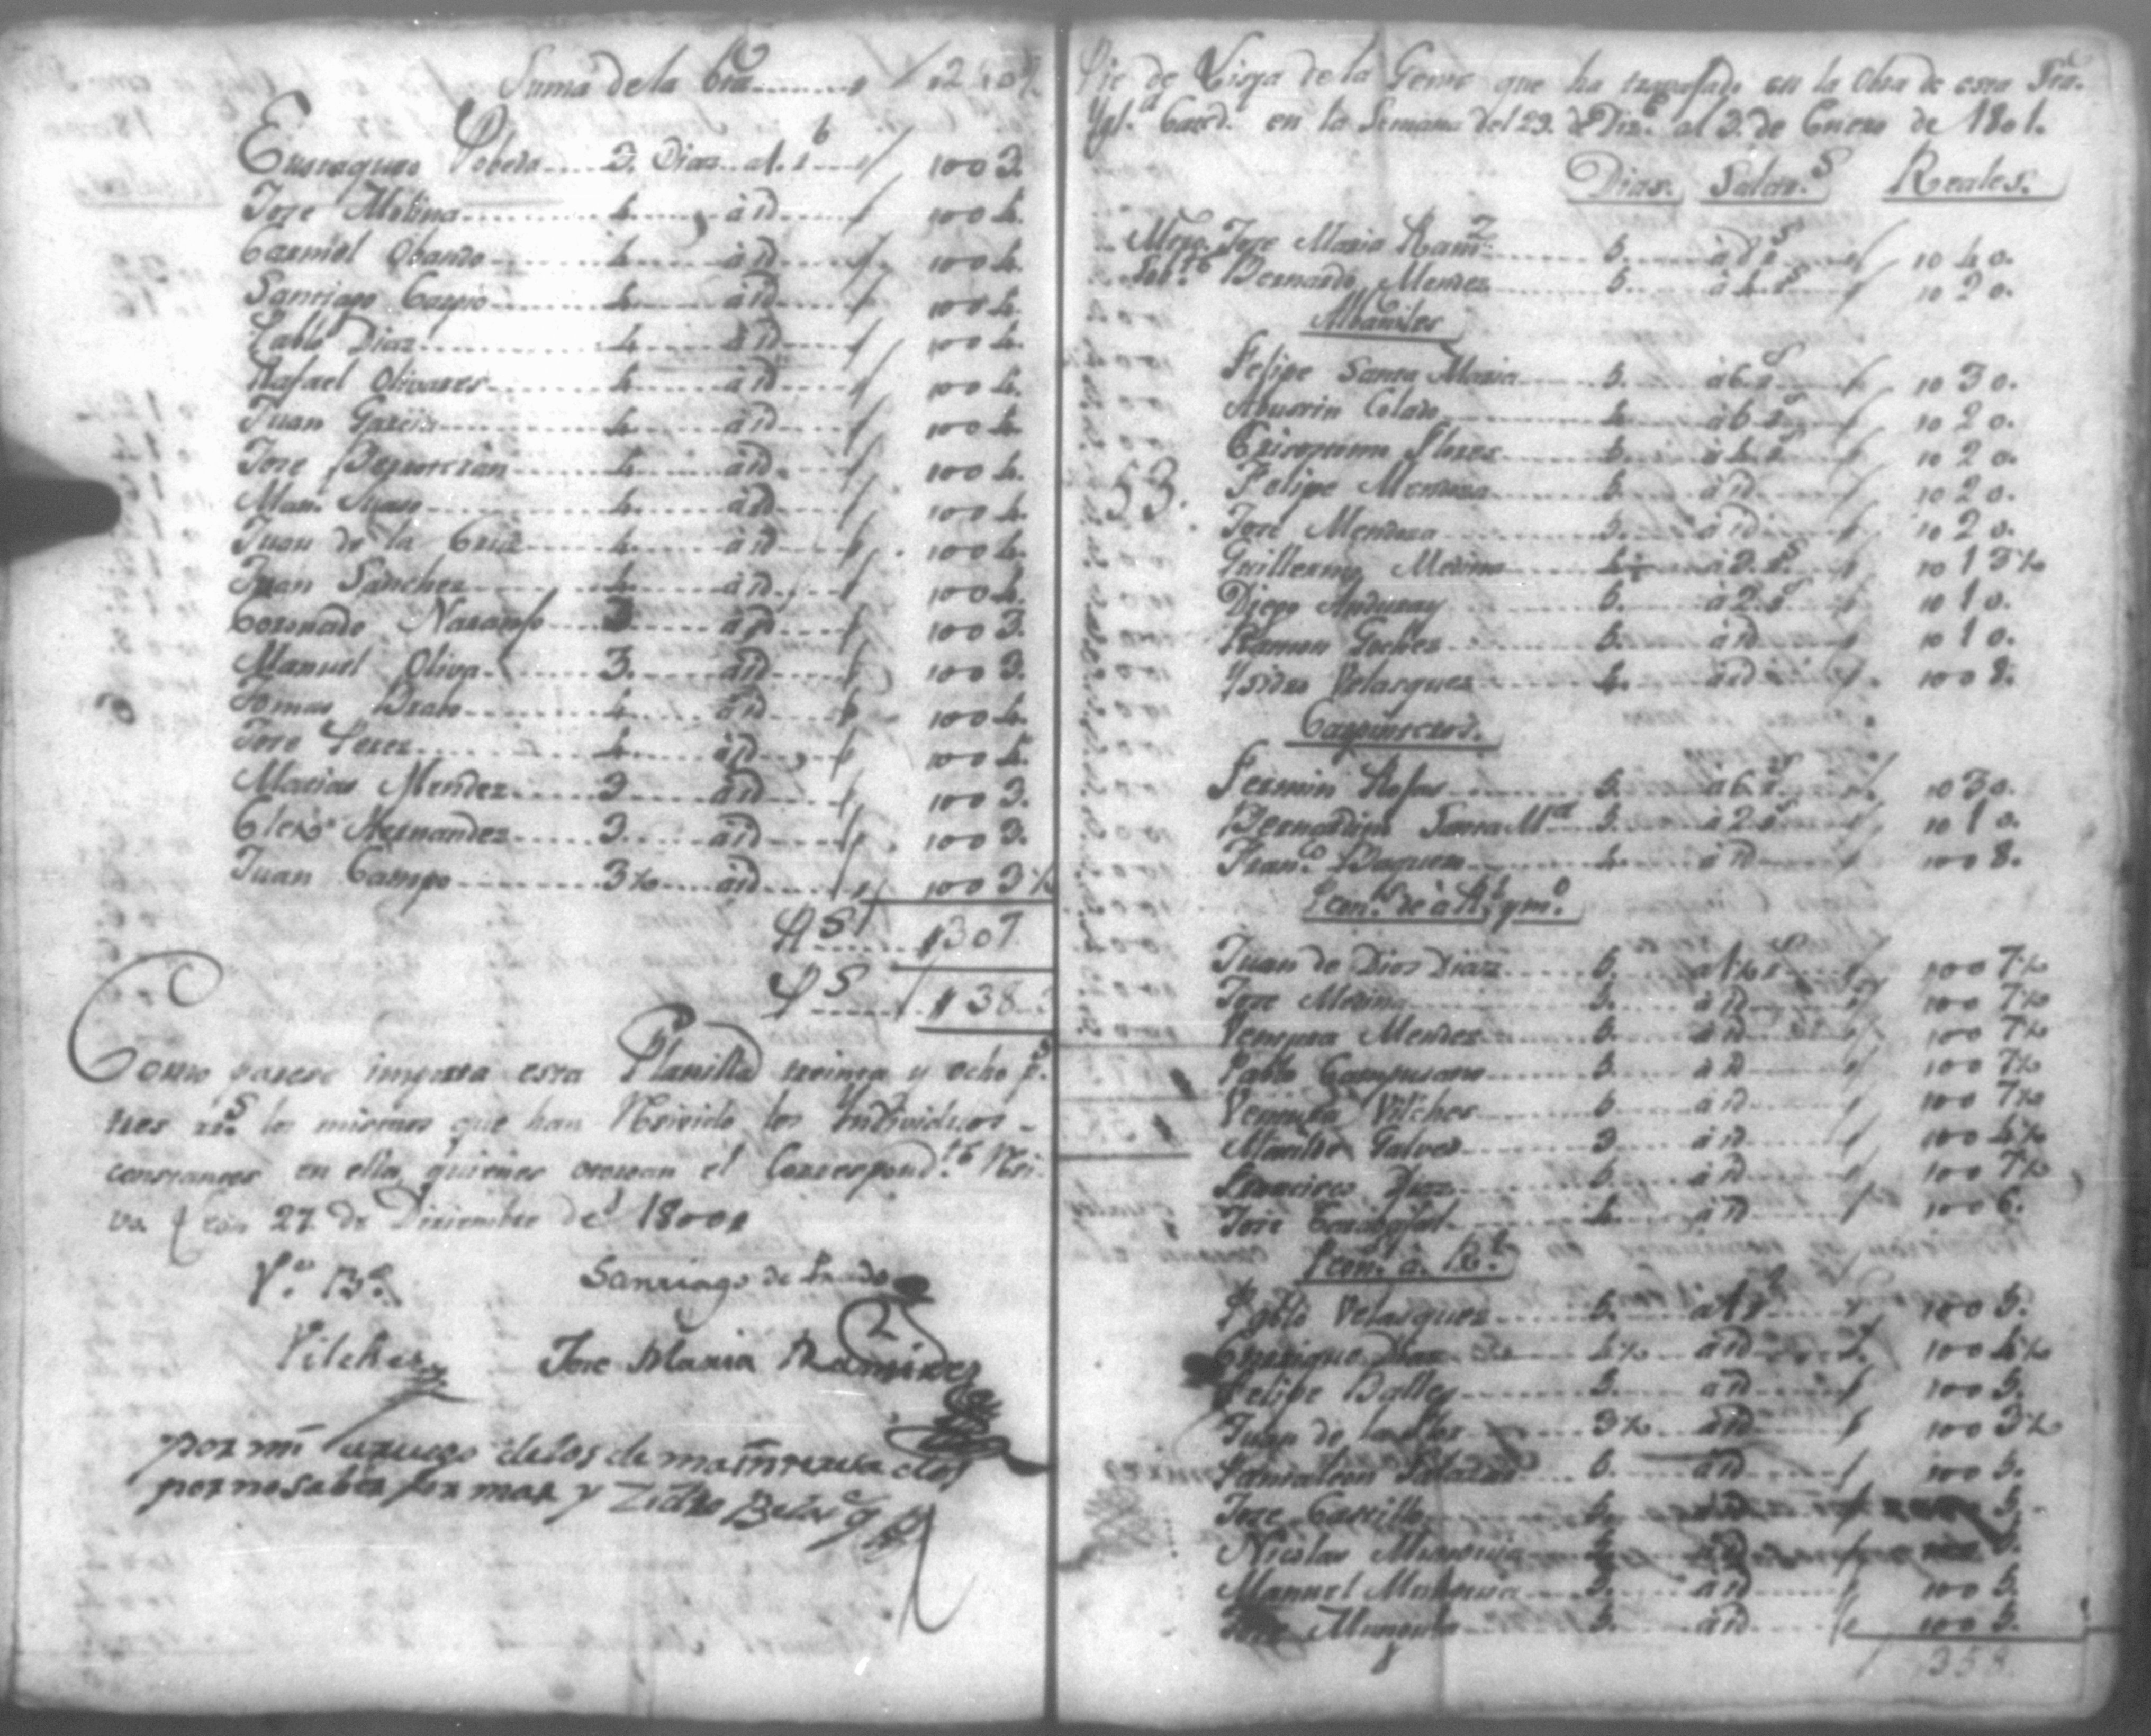 Suma de la bta........ 240½
Eustaquio Pobeda.... 3. Dias.. al. 1 003.
Jose Molina........ 4...... à id..... 004.
Carmiel Obando........ 4...... à id..... 004.
Santiago Carpio........ 4...... à id..... 004.
Pablo Diaz........ 4...... à id..... 004.
Rafael Olivares........ 4...... à id..... 004.
Juan Garcia........ 4...... à id..... 004.
Jose ........ 4...... à id..... 004.
Man. ........ 4...... à id..... 004.
Juan de la Cruz........ 4...... à id..... 004.
Juan Sanchez........ 4...... à id..... 004.
Coronado Naranjo.... 3 à id..... 003.
Manuel Oliva.... 3. à id..... 003.
Tomas Brabo........ 4...... à id..... 004.
Jose Perez........ 4...... à id..... 004.
Matias Mendez.... 3 à id..... 003.
Cleto Hernandez.... 3. à id..... 003.
Juan Campo........ 3½.... à id.... 003½
Rs.... 307
Ps.... 38.3
Como parese importa esta Planilla treinta y ocho ps.
tres rrs. los mismos que han Resivido los Individuos
constantes en ella, quienes otorgan el Correspondte. Resi-
vo. Leon 27. de Diziembre de 1800
Vo. Bo. Santiago de Prado
Vilchez Jose Maria Ramirez
por mi y ruego de los de
por no saber formar y Zidro Belasq
Pie de Lista de la Gente que ha travajado en la Obra de esta Sta.
Ygla. Cated. en la Semana del 29. de Dize. al 3. de Enero de 1801.
Dias. Salars. Reales.
Mtro. Jose Maria Ramz. 5. à 8 rs. 040.
Sobte. Bernardo Mendez 5. à 4 rs. 020.
Albañiles
Felipe Santa Maria 5. à 6 rs. 030.
Agustin Colado 4. à 6 rs. 020.
Crisostomo Flores 5. à 4 rs. 020.
Felipe Mendoza 5. à id 020.
53.
Jose Mendoza 5. à id 020.
Guillermo Medina 4½ à 3 rs. 013½
Diego Anduray 5. à 2 rs. 010.
Ramon Goches 5. à id 010.
Ysidro Velasquez 4. à id 008.
Carpinteros.
Fermin Rojas 5. à 6 rs. 030.
Bernardino Santa Ma. 5. à 2 rs. 010.
Frano. Baquero 4. à id 008.
Peons. de à Rl. y mo.
Juan de Dios Diaz 5. à 1½ rs. 007½
Jose Medina 5. à id 007½
Ventura Mendez 5. à id 007½
Pablo Campusano 5. à id 007½
Ventura Vilches 5 à id 007½
Galvez 3 à id 004½
Francisco Diaz 5. à id 007½
Jose 4. à id 006.
Peons. à Rl.
Pablo Velasquez 5. à 1 rl. 005.
Enrique Diaz 4½ à id 004½
Felipe Balles 5. à id 005.
Juan de 3½ à id 003½
Pantaleon Salazar 5. à id 005.
Jose Castillo 5. à id 5.
Nicolas 5. à id 5.
Manuel 5. à id 005.
Jose 5. à id 005.
358